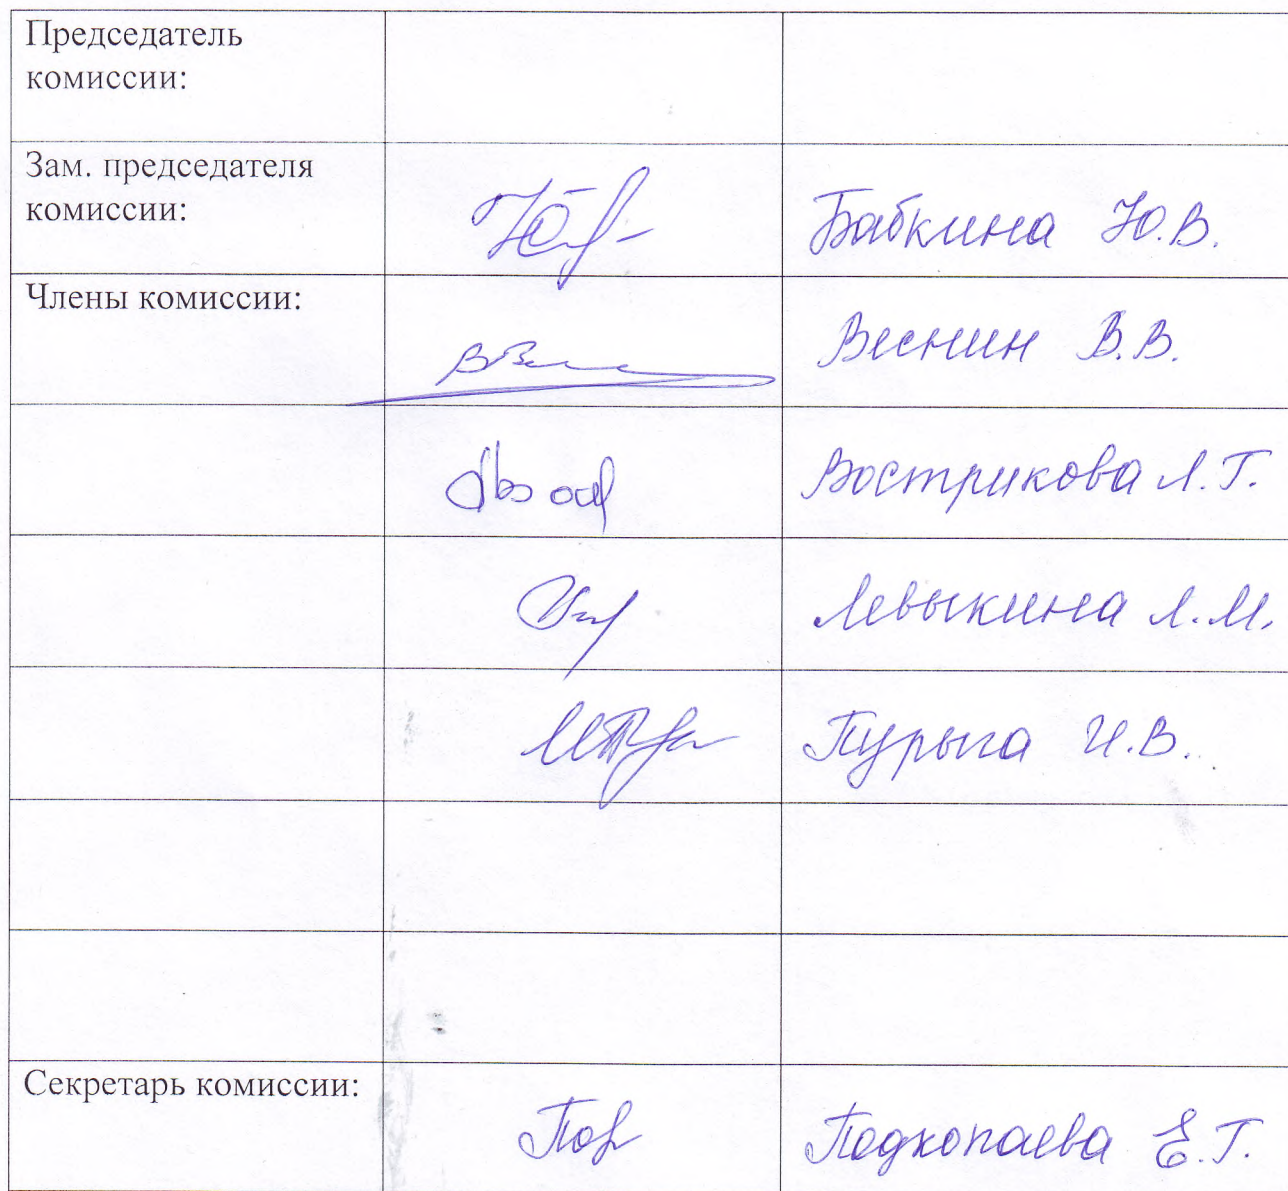 Председатель
комиссии:
Зам. председателя
комиссии:
Бабкина Ю.В.
Члены комиссии:
Веснин В.В.
Вострикова Л.Г.
Левыкина Л.М.
Пурыга И.В.
Секретарь комиссии:
Подкопаева Е.Г.